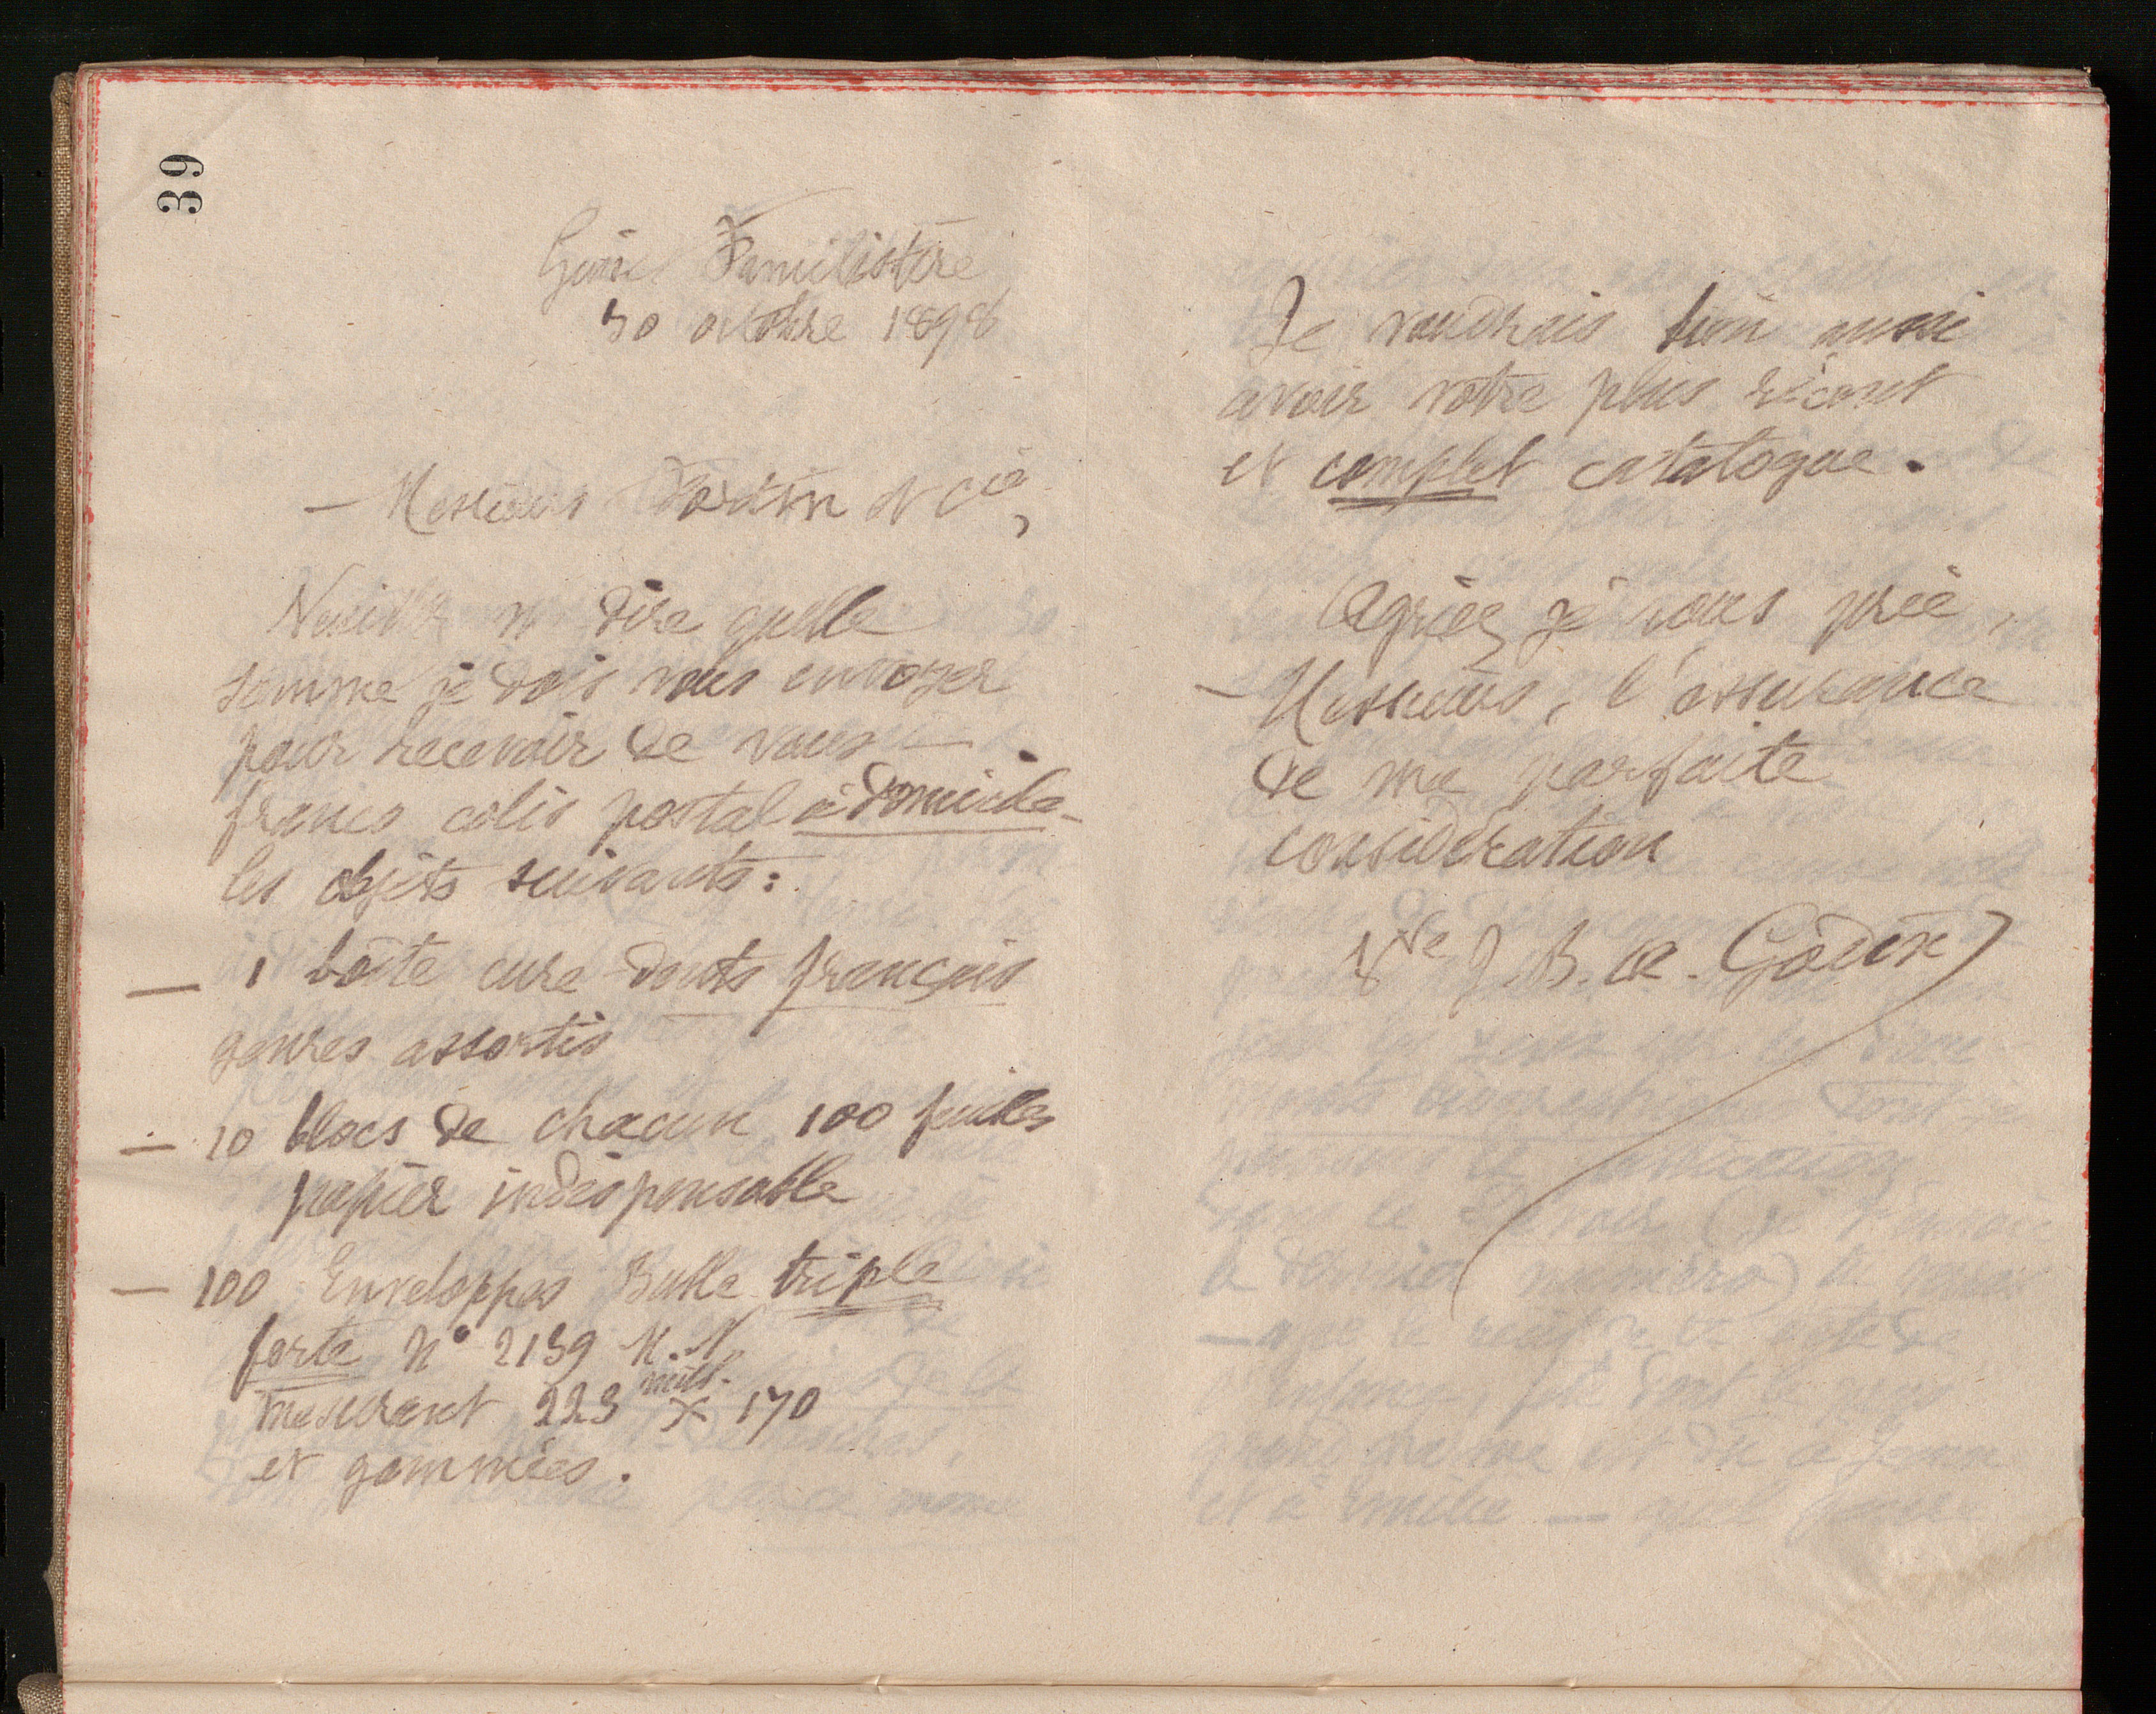 39
Guise Familistère
30 octobre 1898
— Messieurs Fortin et Cie,
Veuillez m dire quelle
somme je dois vous envoyer
pour recevoir de vous —
franco colis postal à domicile —
les objets suivants :
— 1 boîte cure-dents français
genres assortis
— 10 blocs de chacun 100 feuilles
papier indispensable
— 100 Enveloppes Bulle triple
forte N° 2139 M.N.
mesurant 223 mill. x 170
et gommées.
Je voudrais bien aussi
avoir votre plus récent
et complet catalogue.
Agréez, je vous prie,
— Messieurs, l'assurance
de ma parfaite
considération
Vve J. B. A. Godin